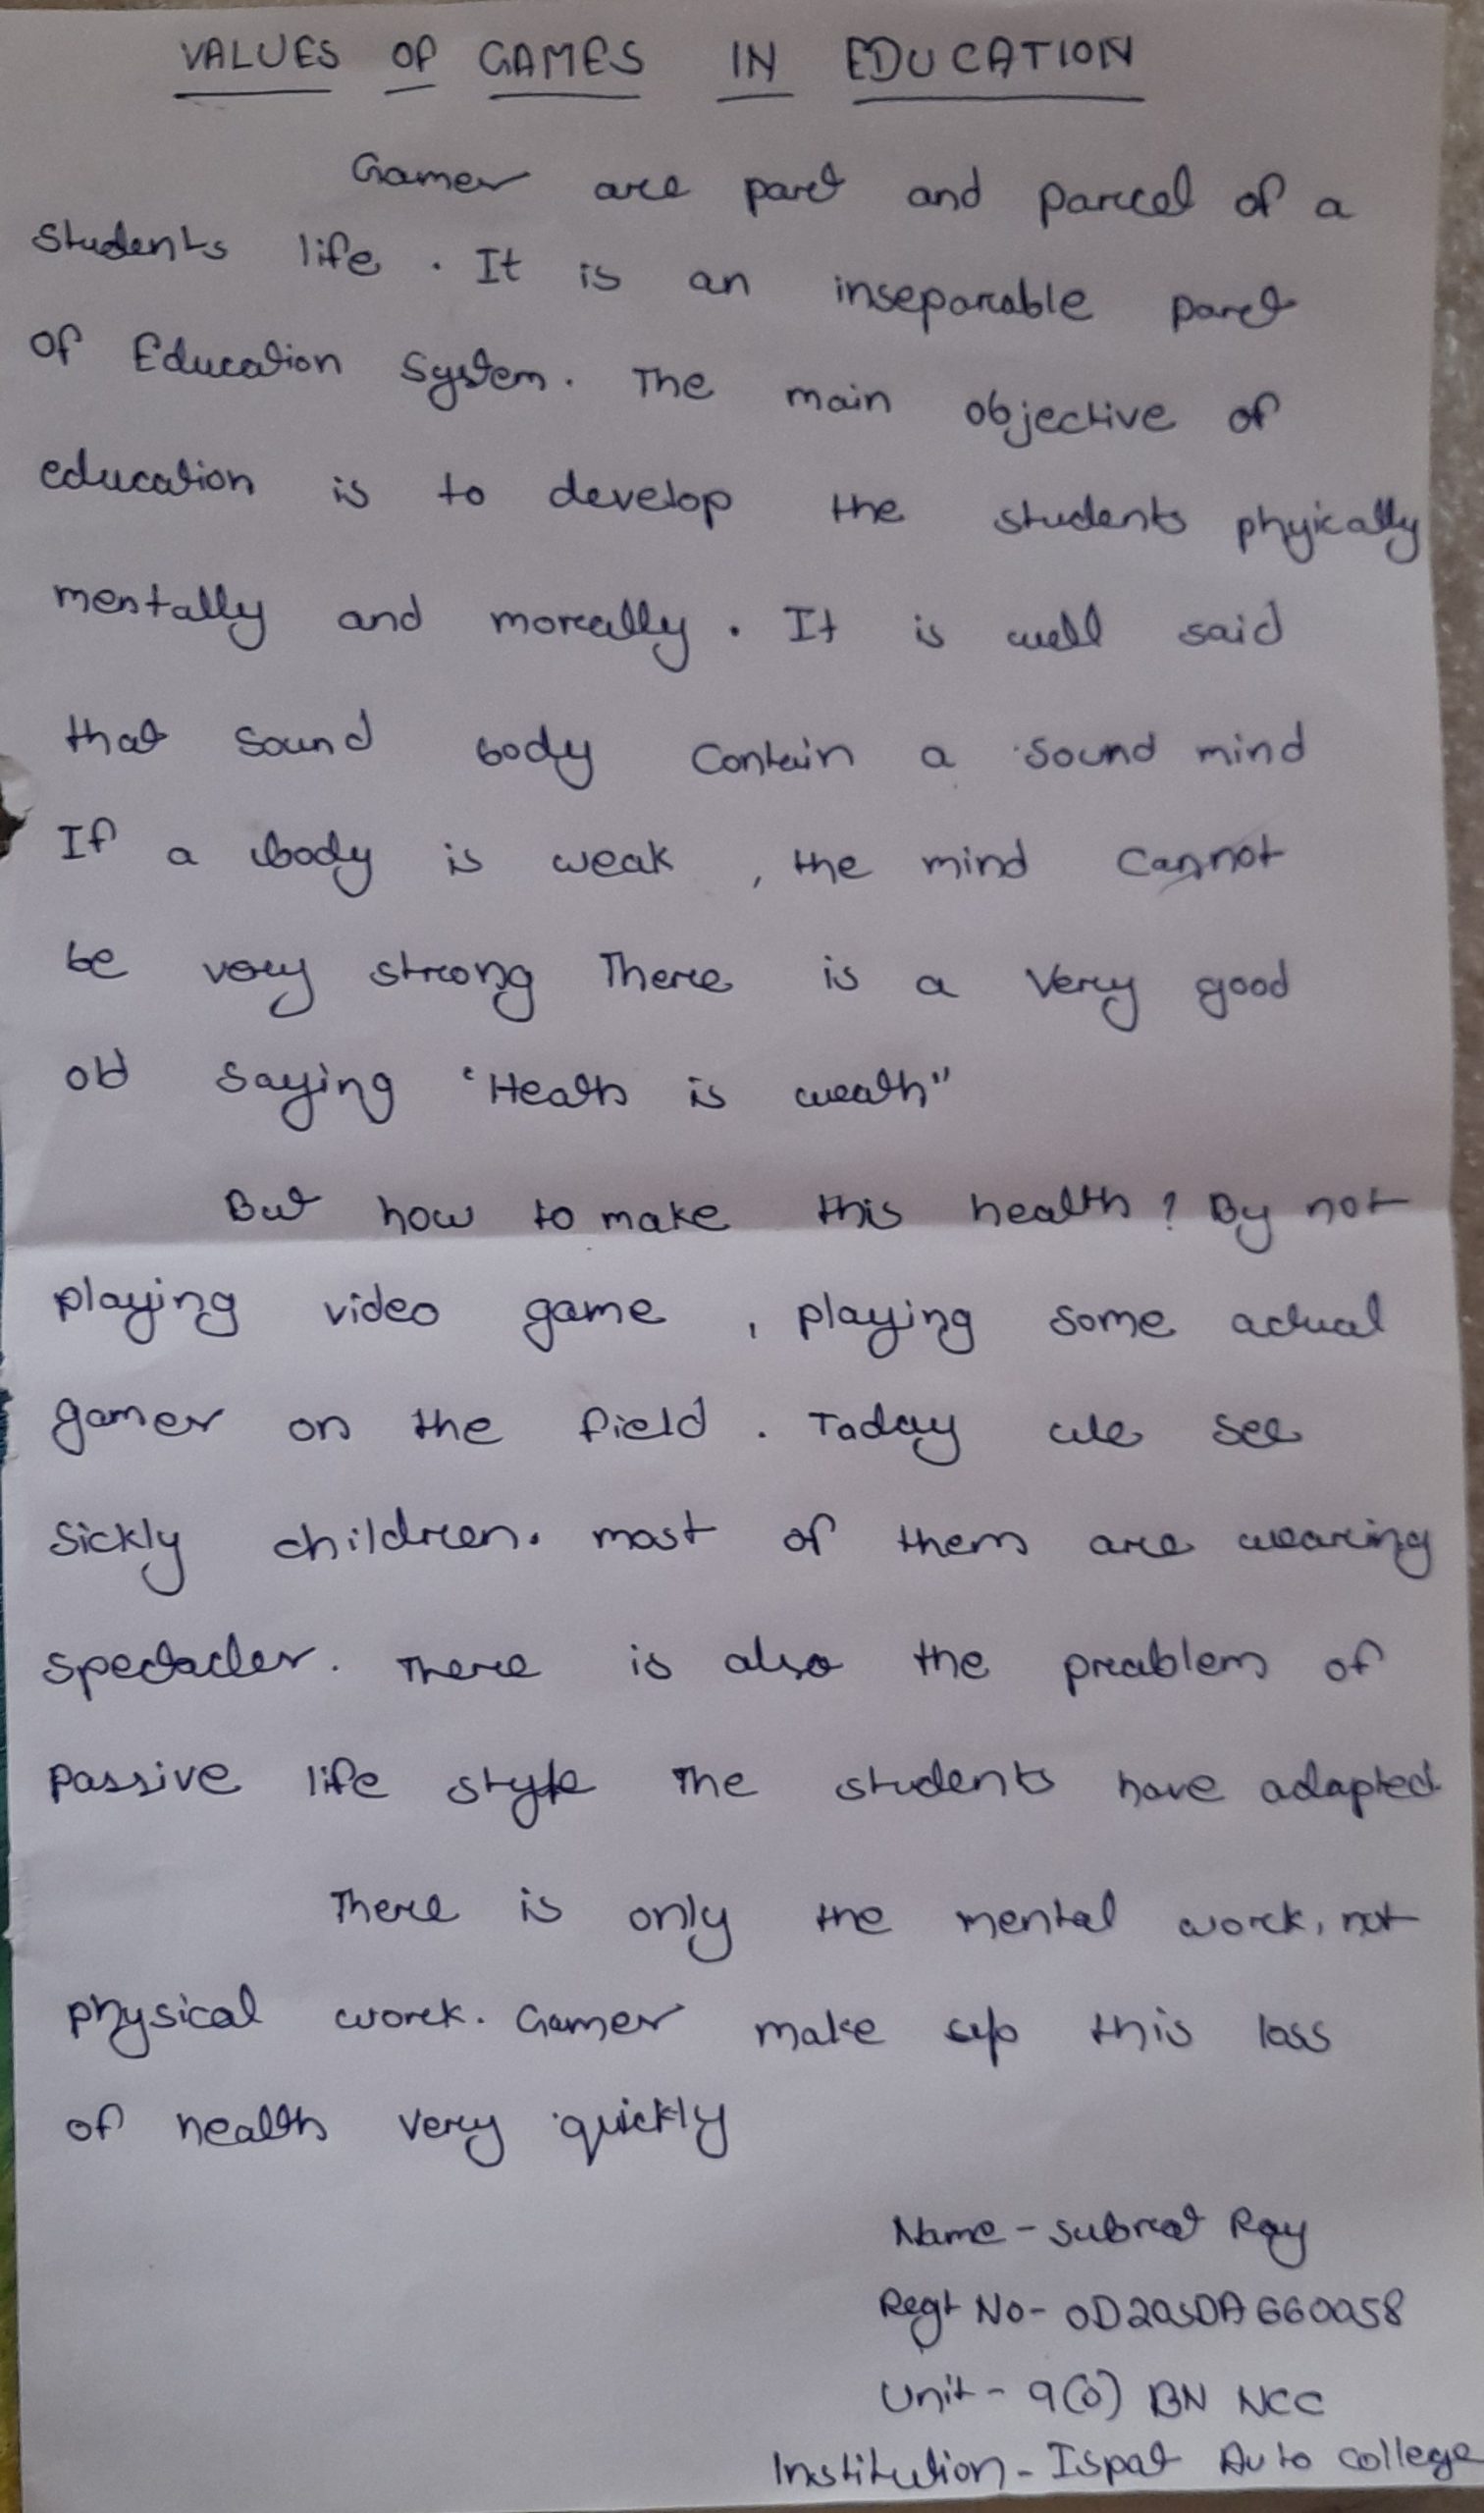 VALUES OF GAMES IN EDUCATION
Games are part and parcel of a
students life. It is an inseparable part
of Education System. The main objective of
education is to develop the students phyically
mentally and morally. It is well said
that sound body contain a sound mind
If a body is weak, the mind cannot
be very strong There is a very good
old saying "Heath is weath"
But how to make this health? By not
playing video game, playing some actual
games on the field. Today we see
sickly children. most of them are wearing
spectacles. There is also the problem of
passive life style The students have adapted
There is only the mental work, not
physical work. Games make up this loss
of health very quickly
Name - Subrat Ray
Regt No- OD20SDA660058
Unit - 9(O) BN NCC
Institution - Ispat Auto college